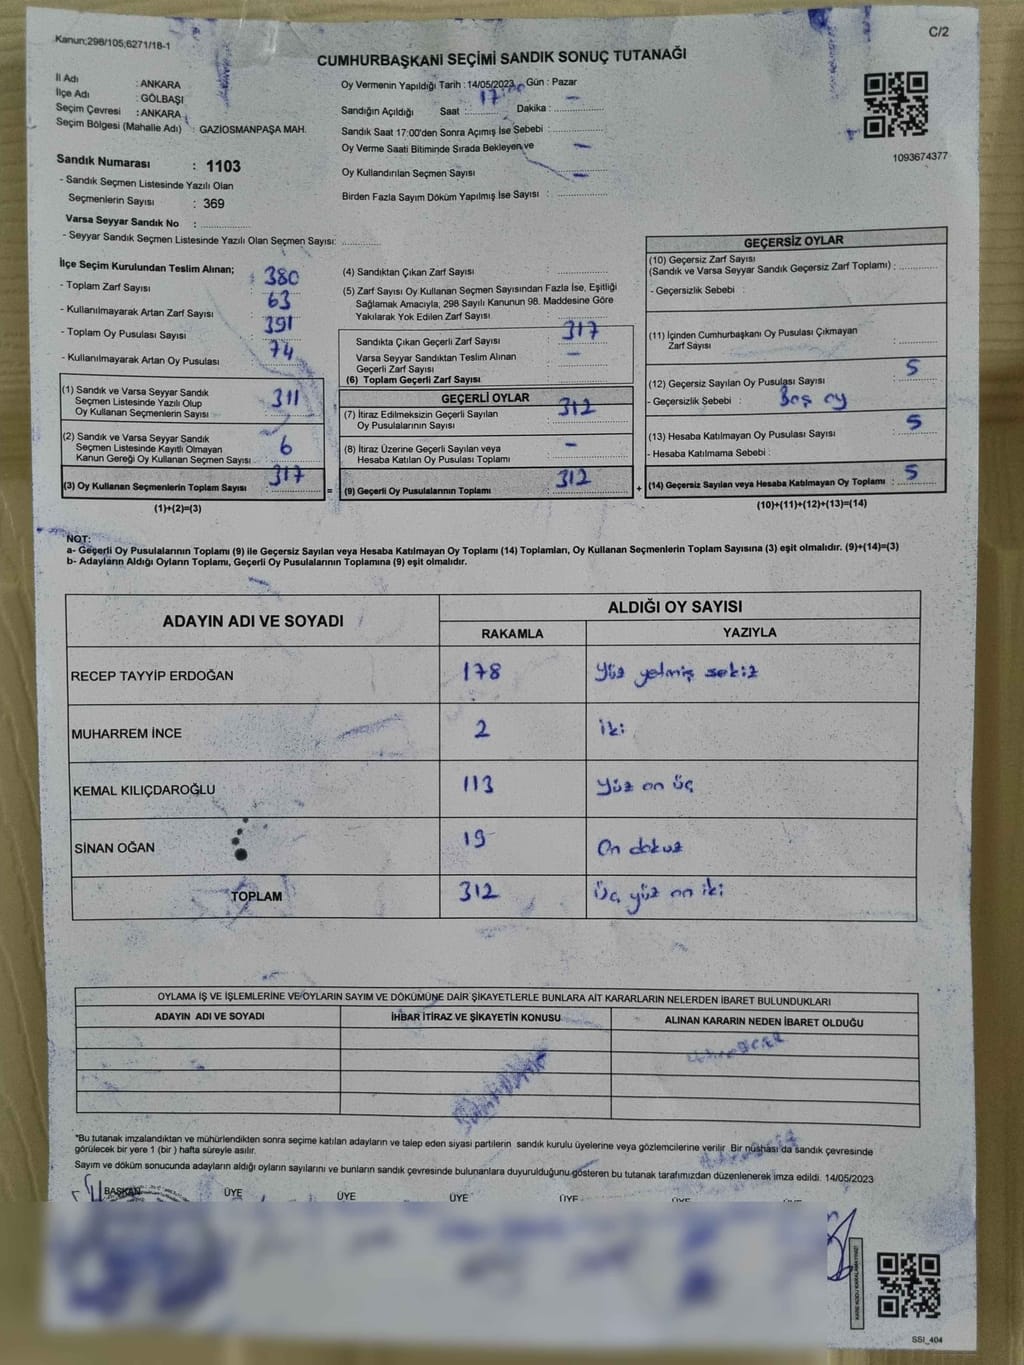 Kanun;298/105,6271/18-1
C/2
CUMHURBAŞKANI SEÇİMİ SANDIK SONUÇ TUTANAĞI
İl Adı : ANKARA
İlçe Adı : GÖLBAŞI
Seçim Çevresi : ANKARA
Seçim Bölgesi (Mahalle Adı) : GAZİOSMANPAŞA MAH.
Sandık Numarası : 1103
- Sandık Seçmen Listesinde Yazılı Olan
Seçmenlerin Sayısı : 369
Varsa Seyyar Sandık No :
- Seyyar Sandık Seçmen Listesinde Yazılı Olan Seçmen Sayısı:
Oy Vermenin Yapıldığı Tarih : 14/05/2023 Gün : Pazar
Sandığın Açıldığı Saat : 17 Dakika : -
Sandık Saat 17:00'den Sonra Açımış İse Sebebi :
Oy Verme Saati Bitiminde Sırada Bekleyen ve -
Oy Kullandırılan Seçmen Sayısı : -
Birden Fazla Sayım Döküm Yapılmış İse Sayısı :
1093674377
İlçe Seçim Kurulundan Teslim Alınan;
- Toplam Zarf Sayısı : 380
- Kullanılmayarak Artan Zarf Sayısı : 63
- Toplam Oy Pusulası Sayısı : 391
- Kullanılmayarak Artan Oy Pusulası : 74
(1) Sandık ve Varsa Seyyar Sandık
Seçmen Listesinde Yazılı Olup
Oy Kullanan Seçmenlerin Sayısı : 311
(2) Sandık ve Varsa Seyyar Sandık
Seçmen Listesinde Kayıtlı Olmayan
Kanun Gereği Oy Kullanan Seçmen Sayısı : 6
(3) Oy Kullanan Seçmenlerin Toplam Sayısı : 317
(1)+(2)=(3)
(4) Sandıktan Çıkan Zarf Sayısı :
(5) Zarf Sayısı Oy Kullanan Seçmen Sayısından Fazla İse, Eşitliği
Sağlamak Amacıyla, 298 Sayılı Kanunun 98. Maddesine Göre
Yakılarak Yok Edilen Zarf Sayısı :
Sandıkta Çıkan Geçerli Zarf Sayısı : 317
Varsa Seyyar Sandıktan Teslim Alınan
Geçerli Zarf Sayısı : -
(6) Toplam Geçerli Zarf Sayısı :
GEÇERLİ OYLAR
(7) İtiraz Edilmeksizin Geçerli Sayılan
Oy Pusulalarının Sayısı : 312
(8) İtiraz Üzerine Geçerli Sayılan veya
Hesaba Katılan Oy Pusulası Toplamı : -
= (9) Geçerli Oy Pusulalarının Toplamı : 312 +
GEÇERSİZ OYLAR
(10) Geçersiz Zarf Sayısı
(Sandık ve Varsa Seyyar Sandık Geçersiz Zarf Toplamı) :
- Geçersizlik Sebebi :
(11) İçinden Cumhurbaşkanı Oy Pusulası Çıkmayan
Zarf Sayısı :
(12) Geçersiz Sayılan Oy Pusulası Sayısı : 5
- Geçersizlik Sebebi : Boş oy
(13) Hesaba Katılmayan Oy Pusulası Sayısı : 5
- Hesaba Katılmama Sebebi :
(14) Geçersiz Sayılan veya Hesaba Katılmayan Oy Toplamı : 5
(10)+(11)+(12)+(13)=(14)
NOT:
a- Geçerli Oy Pusulalarının Toplamı (9) ile Geçersiz Sayılan veya Hesaba Katılmayan Oy Toplamı (14) Toplamları, Oy Kullanan Seçmenlerin Toplam Sayısına (3) eşit olmalıdır. (9)+(14)=(3)
b- Adayların Aldığı Oyların Toplamı, Geçerli Oy Pusulalarının Toplamına (9) eşit olmalıdır.
ADAYIN ADI VE SOYADI ALDIĞI OY SAYISI
RAKAMLA YAZIYLA
RECEP TAYYİP ERDOĞAN 178 Yüz yetmiş sekiz
MUHARREM İNCE 2 iki
KEMAL KILIÇDAROĞLU 113 Yüz on üç
SİNAN OĞAN 19 On dokuz
TOPLAM 312 Üç yüz on iki
OYLAMA İŞ VE İŞLEMLERİNE VE OYLARIN SAYIM VE DÖKÜMÜNE DAİR ŞİKAYETLERLE BUNLARA AİT KARARLARIN NELERDEN İBARET BULUNDUKLARI
ADAYIN ADI VE SOYADI İHBAR İTİRAZ VE ŞİKAYETİN KONUSU ALINAN KARARIN NEDEN İBARET OLDUĞU
*Bu tutanak imzalandıktan ve mühürlendikten sonra seçime katılan adayların ve talep eden siyasi partilerin sandık kurulu üyelerine veya gözlemcilerine verilir. Bir nüshası da sandık çevresinde
görülecek bir yere 1 (bir ) hafta süreyle asılır.
Sayım ve döküm sonucunda adayların aldığı oyların sayılarını ve bunların sandık çevresinde bulunanlara duyurulduğunu gösteren bu tutanak tarafımızdan düzenlenerek imza edildi. 14/05/2023
BAŞKAN ÜYE ÜYE ÜYE ÜYE ÜYE ÜYE
SSI_404